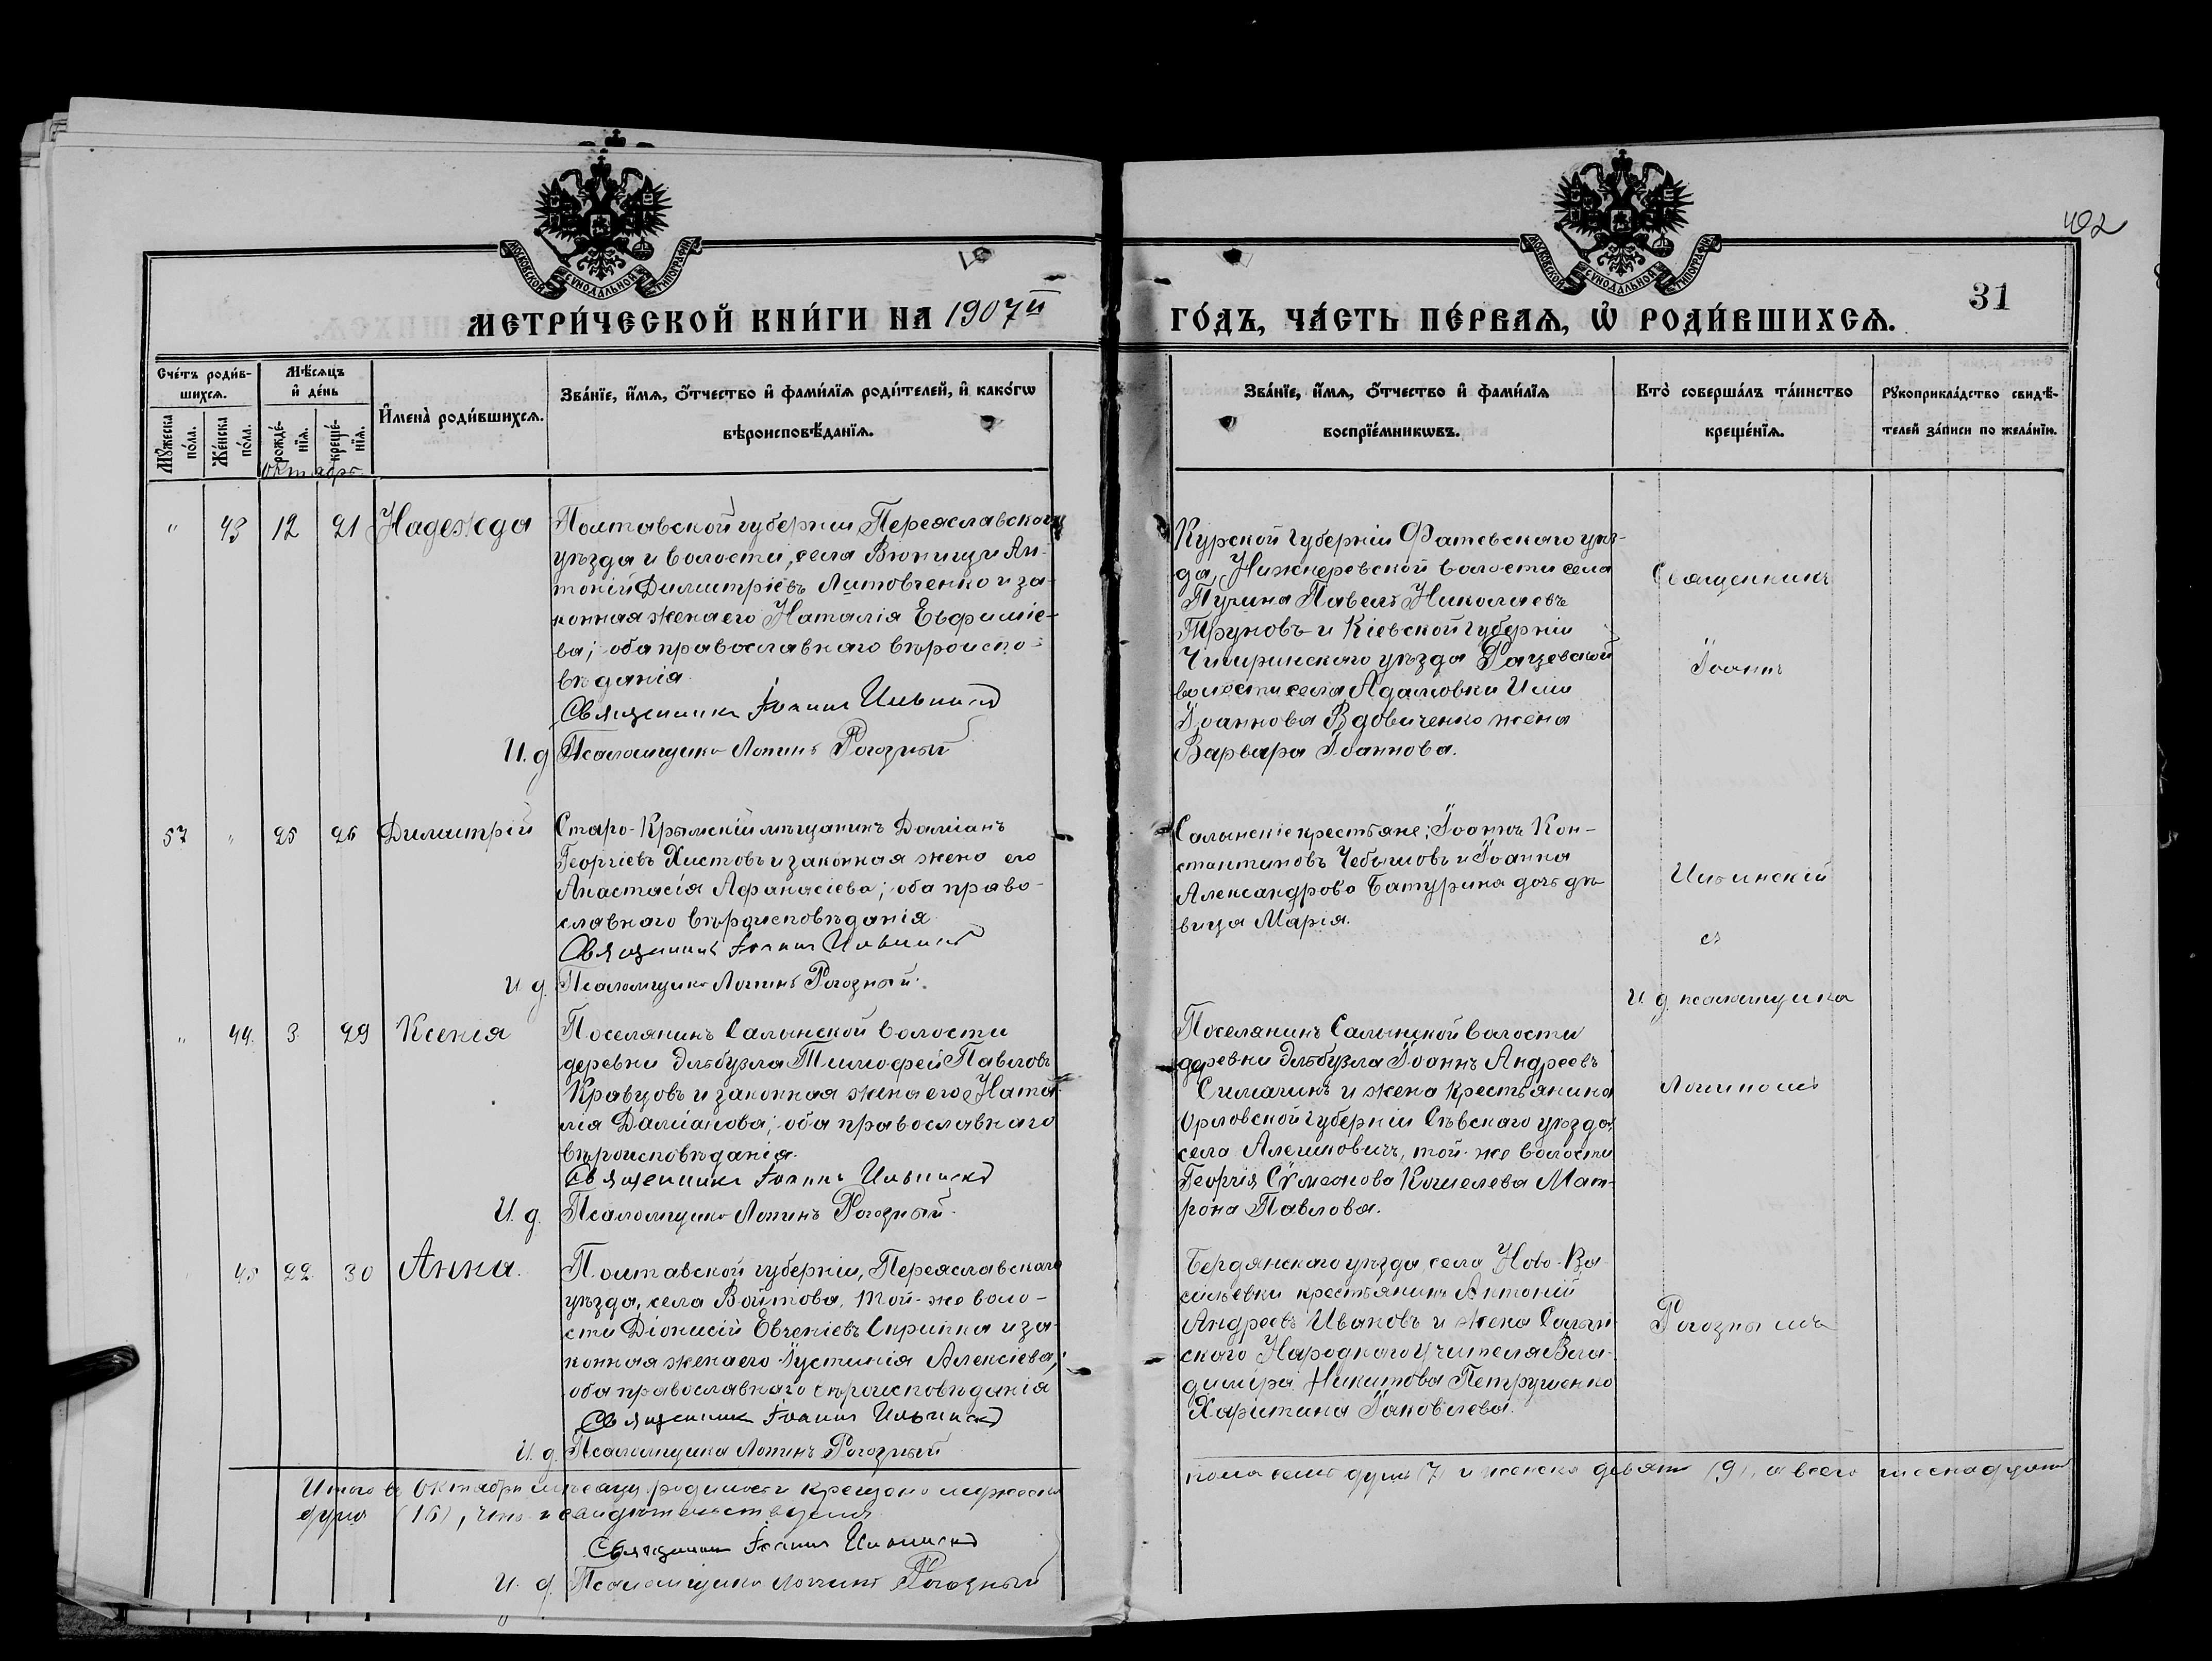 402
31
МОСКОВСКОЙ СѴНОДАЛЬНОЙ ТИПОГРАФІИ
МОСКОВСКОЙ СѴНОДАЛЬНОЙ ТИПОГРАФІИ
МЕТРИ́ЧЕСКОЙ КНИ́ГИ НА 1907й ГО́ДЪ, ЧА́СТЬ ПЕ́РВАЯ, Ѡ҆ РОДИ́ВШИХСЯ.
Сче́тъ роди́в-
шихся.
Мꙋ́жеска по́ла.
Же́нска по́ла.
Мѣ́сяцъ
и҆ де́нь
рожде́-
нїя.
креще́-
нїя.
Октябрь
И҆мена̀ роди́вшихся.
Зва́нїе, и҆́мя, ѻ҆́тчество и҆ фами́лїя роди́телей, и҆ како́гѡ
вѣроисповѣ́данїя.
Зва́нїе, и҆́мя, ѻ҆́тчество и҆ фами́лїя
воспрїе́мникѡвъ.
Кто̀ соверша́лъ та́инство
креще́нїя.
Рꙋкоприкла́дство свидѣ́-
телей за́писи по жела́нїю.
" 43 12 21 Надежда
Полтавской губерніи Переяславскаго
уѣзда и волости, села Вюнищи Ан-
тоній Димитріевъ Литовченко и за-
конная жена его Наталія Евфиміе-
ва; оба православнаго вѣроиспо-
вѣданія.
Священникъ Іоаннъ Ильинскій
И. д. Псаломщика Логинъ Рогозный
Курской губерніи Фатевскаго уѣз-
да, Нижнеревской волости села
Пузина Павелъ Николаевъ
Труновъ и Кіевской губерніи
Чигиринскаго уѣзда Рацевской
волости села Адамовки Ильи
Іоаннова Вдовиченко жена
Варвара Іоаннова.
Священникъ
Іоаннъ
57 " 25 26 Димитрій
Старо-Крымскій мѣщанинъ Даміанъ
Георгіевъ Христовъ и законная жена его
Анастасія Афанасіева; оба право-
славнаго вѣроисповѣданія
Священникъ Іоаннъ Ильинскій
И. д. Псаломщика Логинъ Рогозный.
Салынскіе крестьяне: Іоаннъ Кон-
стантиновъ Чебышовъ и Іоанна
Александрова Батурина дочь дѣ-
вица Марія.
Ильинскій
съ
И. д. псаломщика
" 44. 3. 29 Ксенія
Поселянинъ Салынской волости
деревни Эльбузла Тимофей Павловъ
Кравцовъ и законная жена его Ната-
лія Даміанова; оба православнаго
вѣроисповѣданія.
Священникъ Іоаннъ Ильинскій
И. д. Псаломщика Логинъ Рогозный.
Поселянинъ Салынской волости
деревни Эльбузла Іоаннъ Андреевъ
Симагинъ и жена крестьянина
Орловской губерніи Сѣвскаго уѣзда,
села Алешковичъ, той-же волости
Георгія Сѵмеонова Кошелева Мат-
рона Павлова.
Логиномъ
45 22 30 Анна.
Полтавской губерніи, Переяславскаго
уѣзда, села Войтова, той-же воло-
сти Діонисій Евгеніевъ Скрипка и за-
конная жена его Іустинія Алексіева;
оба православнаго вѣроисповѣданія
Священникъ Іоаннъ Ильинскій
И. д. Псаломщика Логинъ Рогозный
Бердянскаго уѣзда, села Ново-Ва
сильевки крестьянинъ Антоній
Андреевъ Ивановъ и жена Салын
скаго Народнаго учителя Вла-
диміра Никитова Петрушенко
Харитина Іаковлева.
Рогознымъ
Итого въ Октябрѣ мѣсяцѣ родилось и крещено мужеска пола семь душъ (7) и женска девять (9), а всего шеснадцать
душъ (16), что и свидѣтельствуемъ
Священникъ Іоаннъ Ильинскій
И. д. Псаломщика Логинъ Рогозный